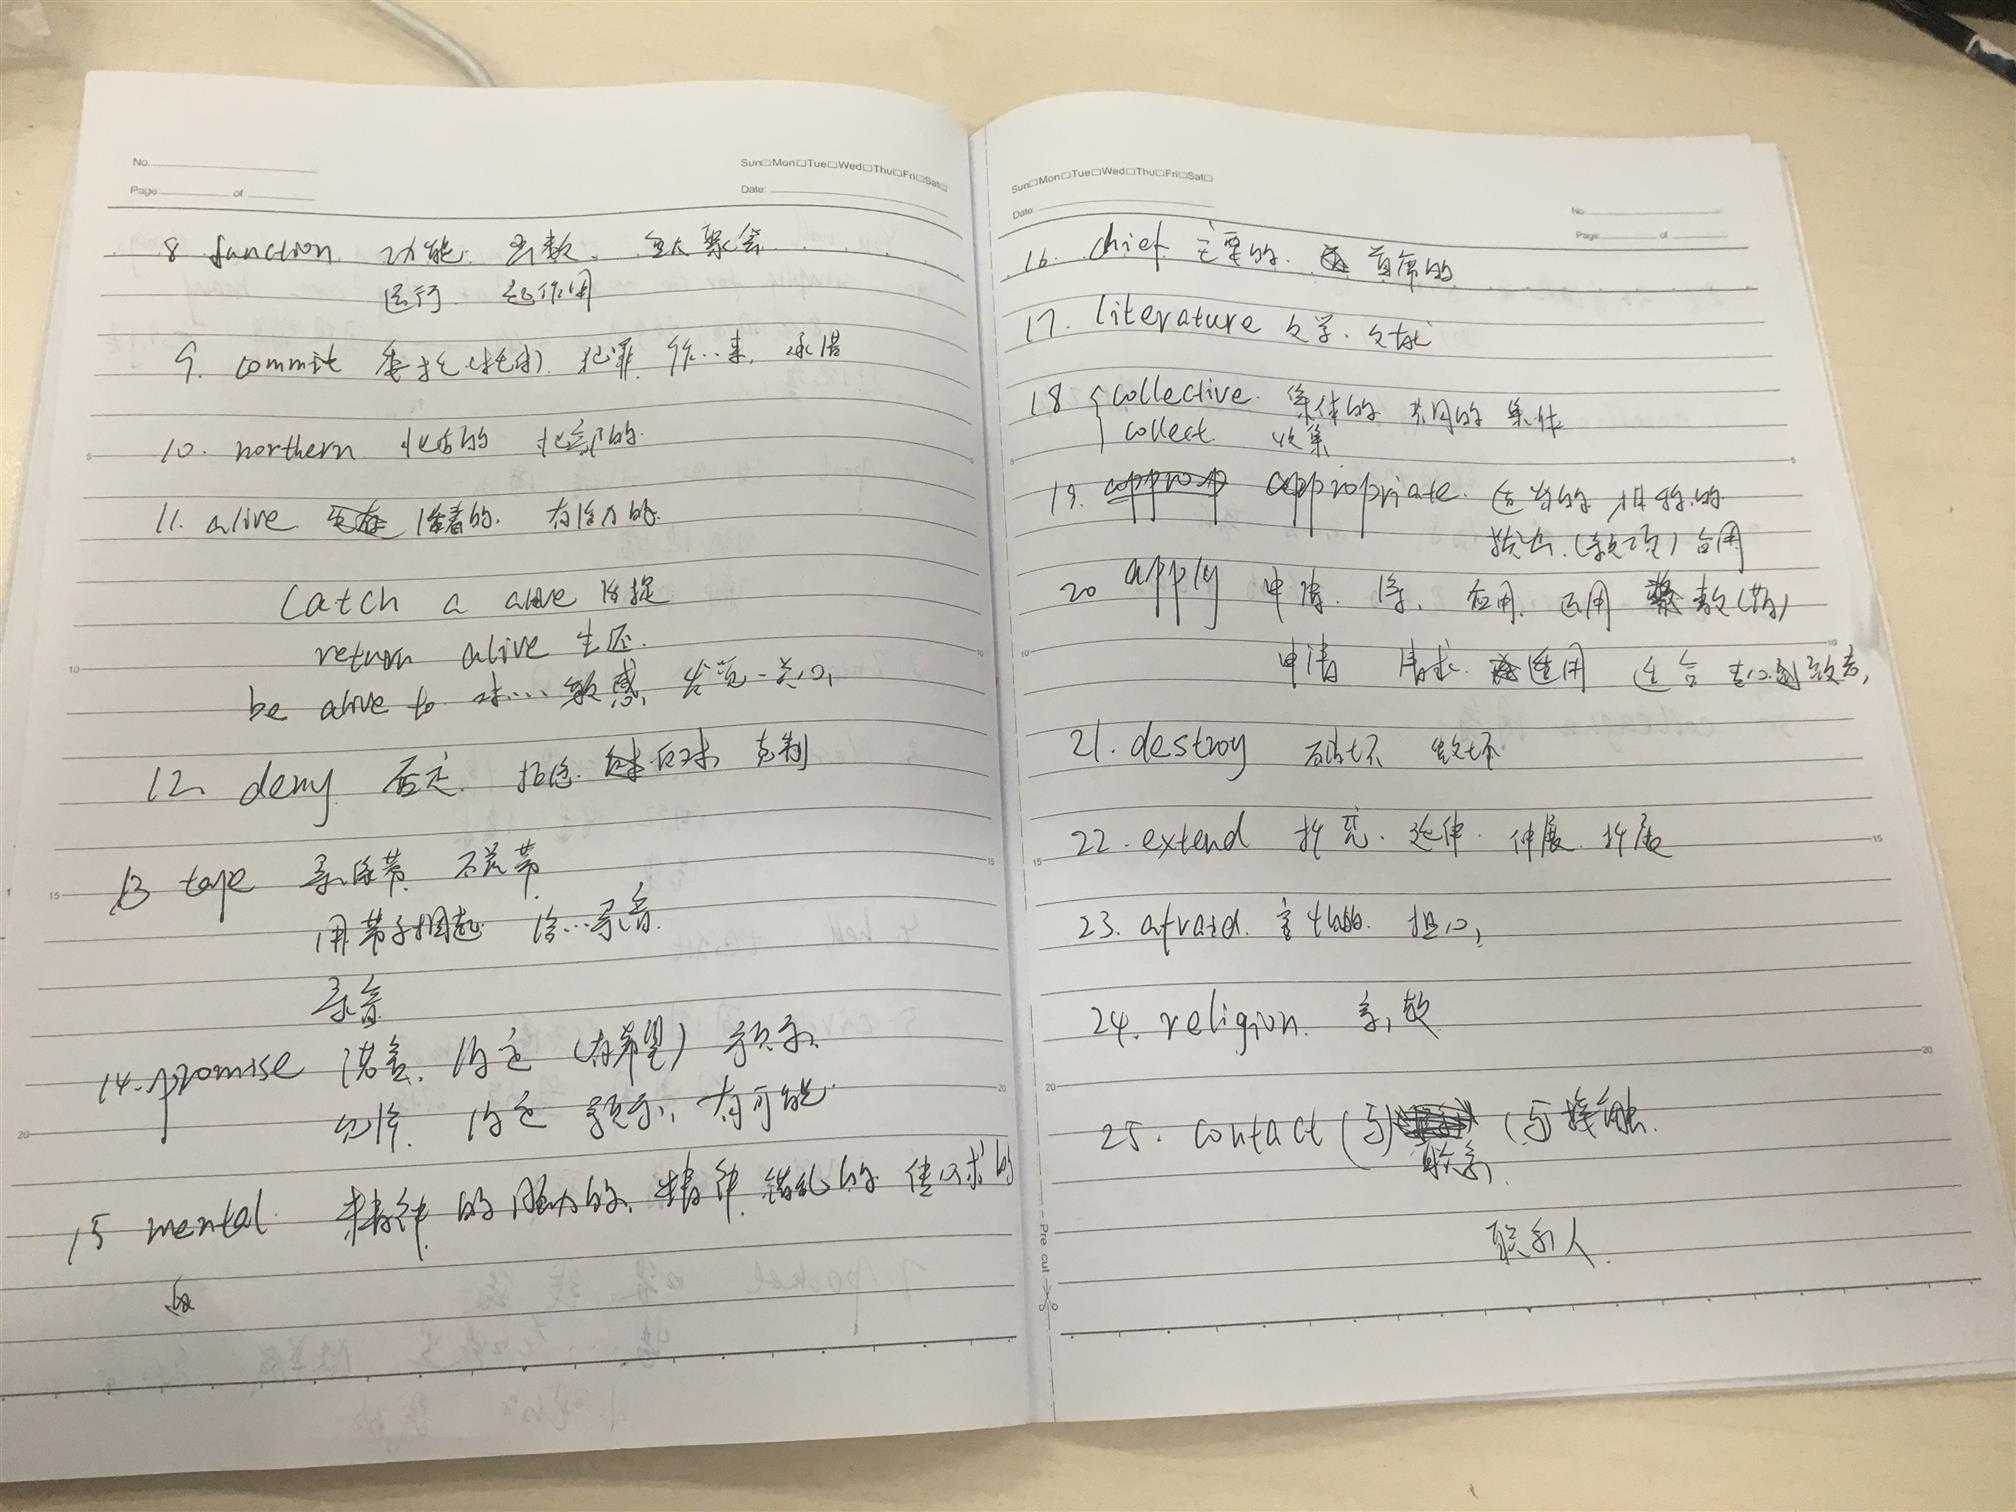 No.
Page of
Sun□Mon□Tue□Wed□Thu□Fri□Sat□
Date:
8 function 功能 函数 盛大聚会
运行 起作用
9. commit 委托(托付) 犯罪 作…事, 承诺
10. northern 北方的 北部的
11. alive 活着的. 有活力的
Catch a alive 活捉
return alive 生还.
be alive to 对…敏感, 关心
12 deny 否定. 拒绝 反对 克制
13 tape 录像带 磁带
用带子捆起 给…录音.
录音
14. promise 诺言. 约定 (有希望) 预示
允许. 约定 预示, 有可能
15 mental 精神的 脑力的, 精神错乱的
Sun□Mon□Tue□Wed□Thu□Fri□Sat□
Date:
No.
Page of
16. chief 主要的. 首席的
17. literature 文学. 文献
18 { collective 集体的 共同的 集体
collect 收集
19. appropriate. 适当的
拨出.(款项) 占用
20 apply 申请. 涂. 应用. 敷(药)
申请 请求. 适用 适合
21. destroy 破坏 毁坏
22. extend 扩充. 延伸. 伸展. 扩展
23. afraid. 害怕的 担心
24. religion. 宗教
25. contact (与) (与)接触.
联系
联系人
Pre cut